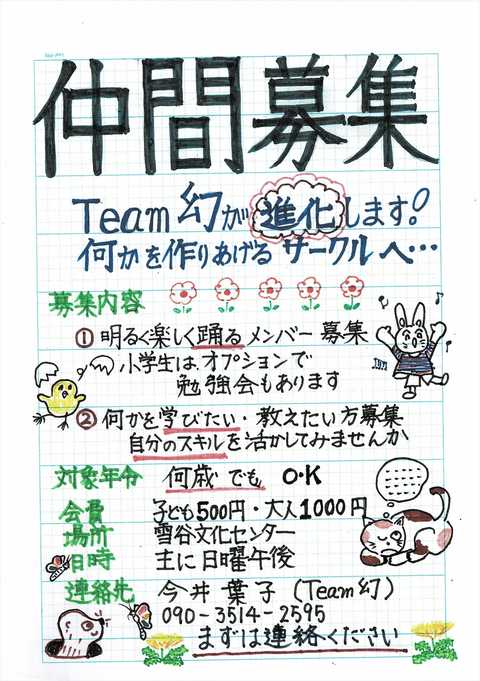 仲間募集
Team 幻が進化します!
何かを作りあげる サークルへ…
募集内容
① 明るく楽しく踊るメンバー 募集
小学生は、オプションで
勉強会もあります
② 何かを学びたい・教えたい方募集
自分のスキルを活かしてみませんか
対象年令 何歳でも O・K
会費 子ども500円・大人1000円
場所 雪谷文化センター
日時 主に日曜午後
連絡先 今井葉子(Team幻)
090-3514-2595
まずは連絡ください